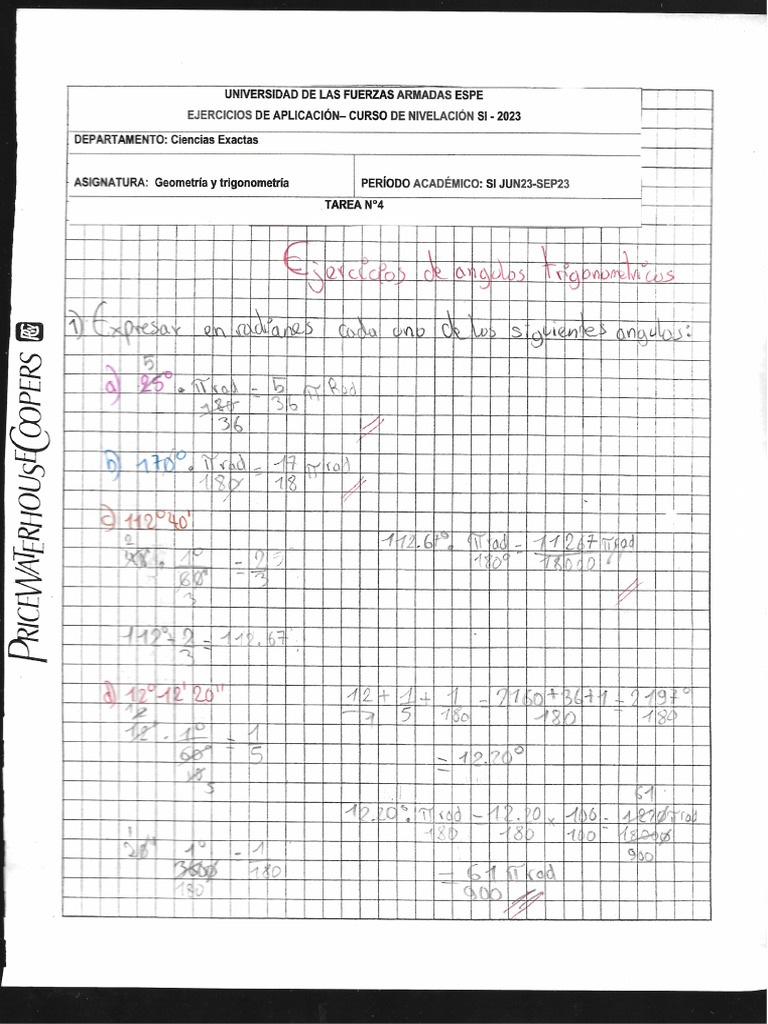 UNIVERSIDAD DE LAS FUERZAS ARMADAS ESPE
EJERCICIOS DE APLICACIÓN– CURSO DE NIVELACIÓN SI - 2023
DEPARTAMENTO: Ciencias Exactas
ASIGNATURA: Geometría y trigonometría
PERÍODO ACADÉMICO: SI JUN23-SEP23
TAREA N°4
PRICEWATERHOUSECOOPERS
Ejercicios de angulos trigonometricos
1) Expresar en radianes cada uno de los siguientes angulos:
5
a) 25° · π rad/180 = 5/36 π Rad
36
b) 170° · π rad/180 = 17/18 π rad
c) 112°40'
2
40 · 1°/60° = 2/3
3
112.67° · π rad/180° = 11267/18000 π rad
112° + 2/3 = 112.67°
d) 12°12'20"
12
12' · 1°/60° = 1/5
5
12/1 + 1/5 + 1/180 = 2160+36+1/180 = 2197°/180
= 12.20°
12.20° · π rad/180 = 12.20/180 × 100/100 = 1220 π rad/18000
61
900
1
20" 1°/3600 = 1/180
180
= 61 π rad/900